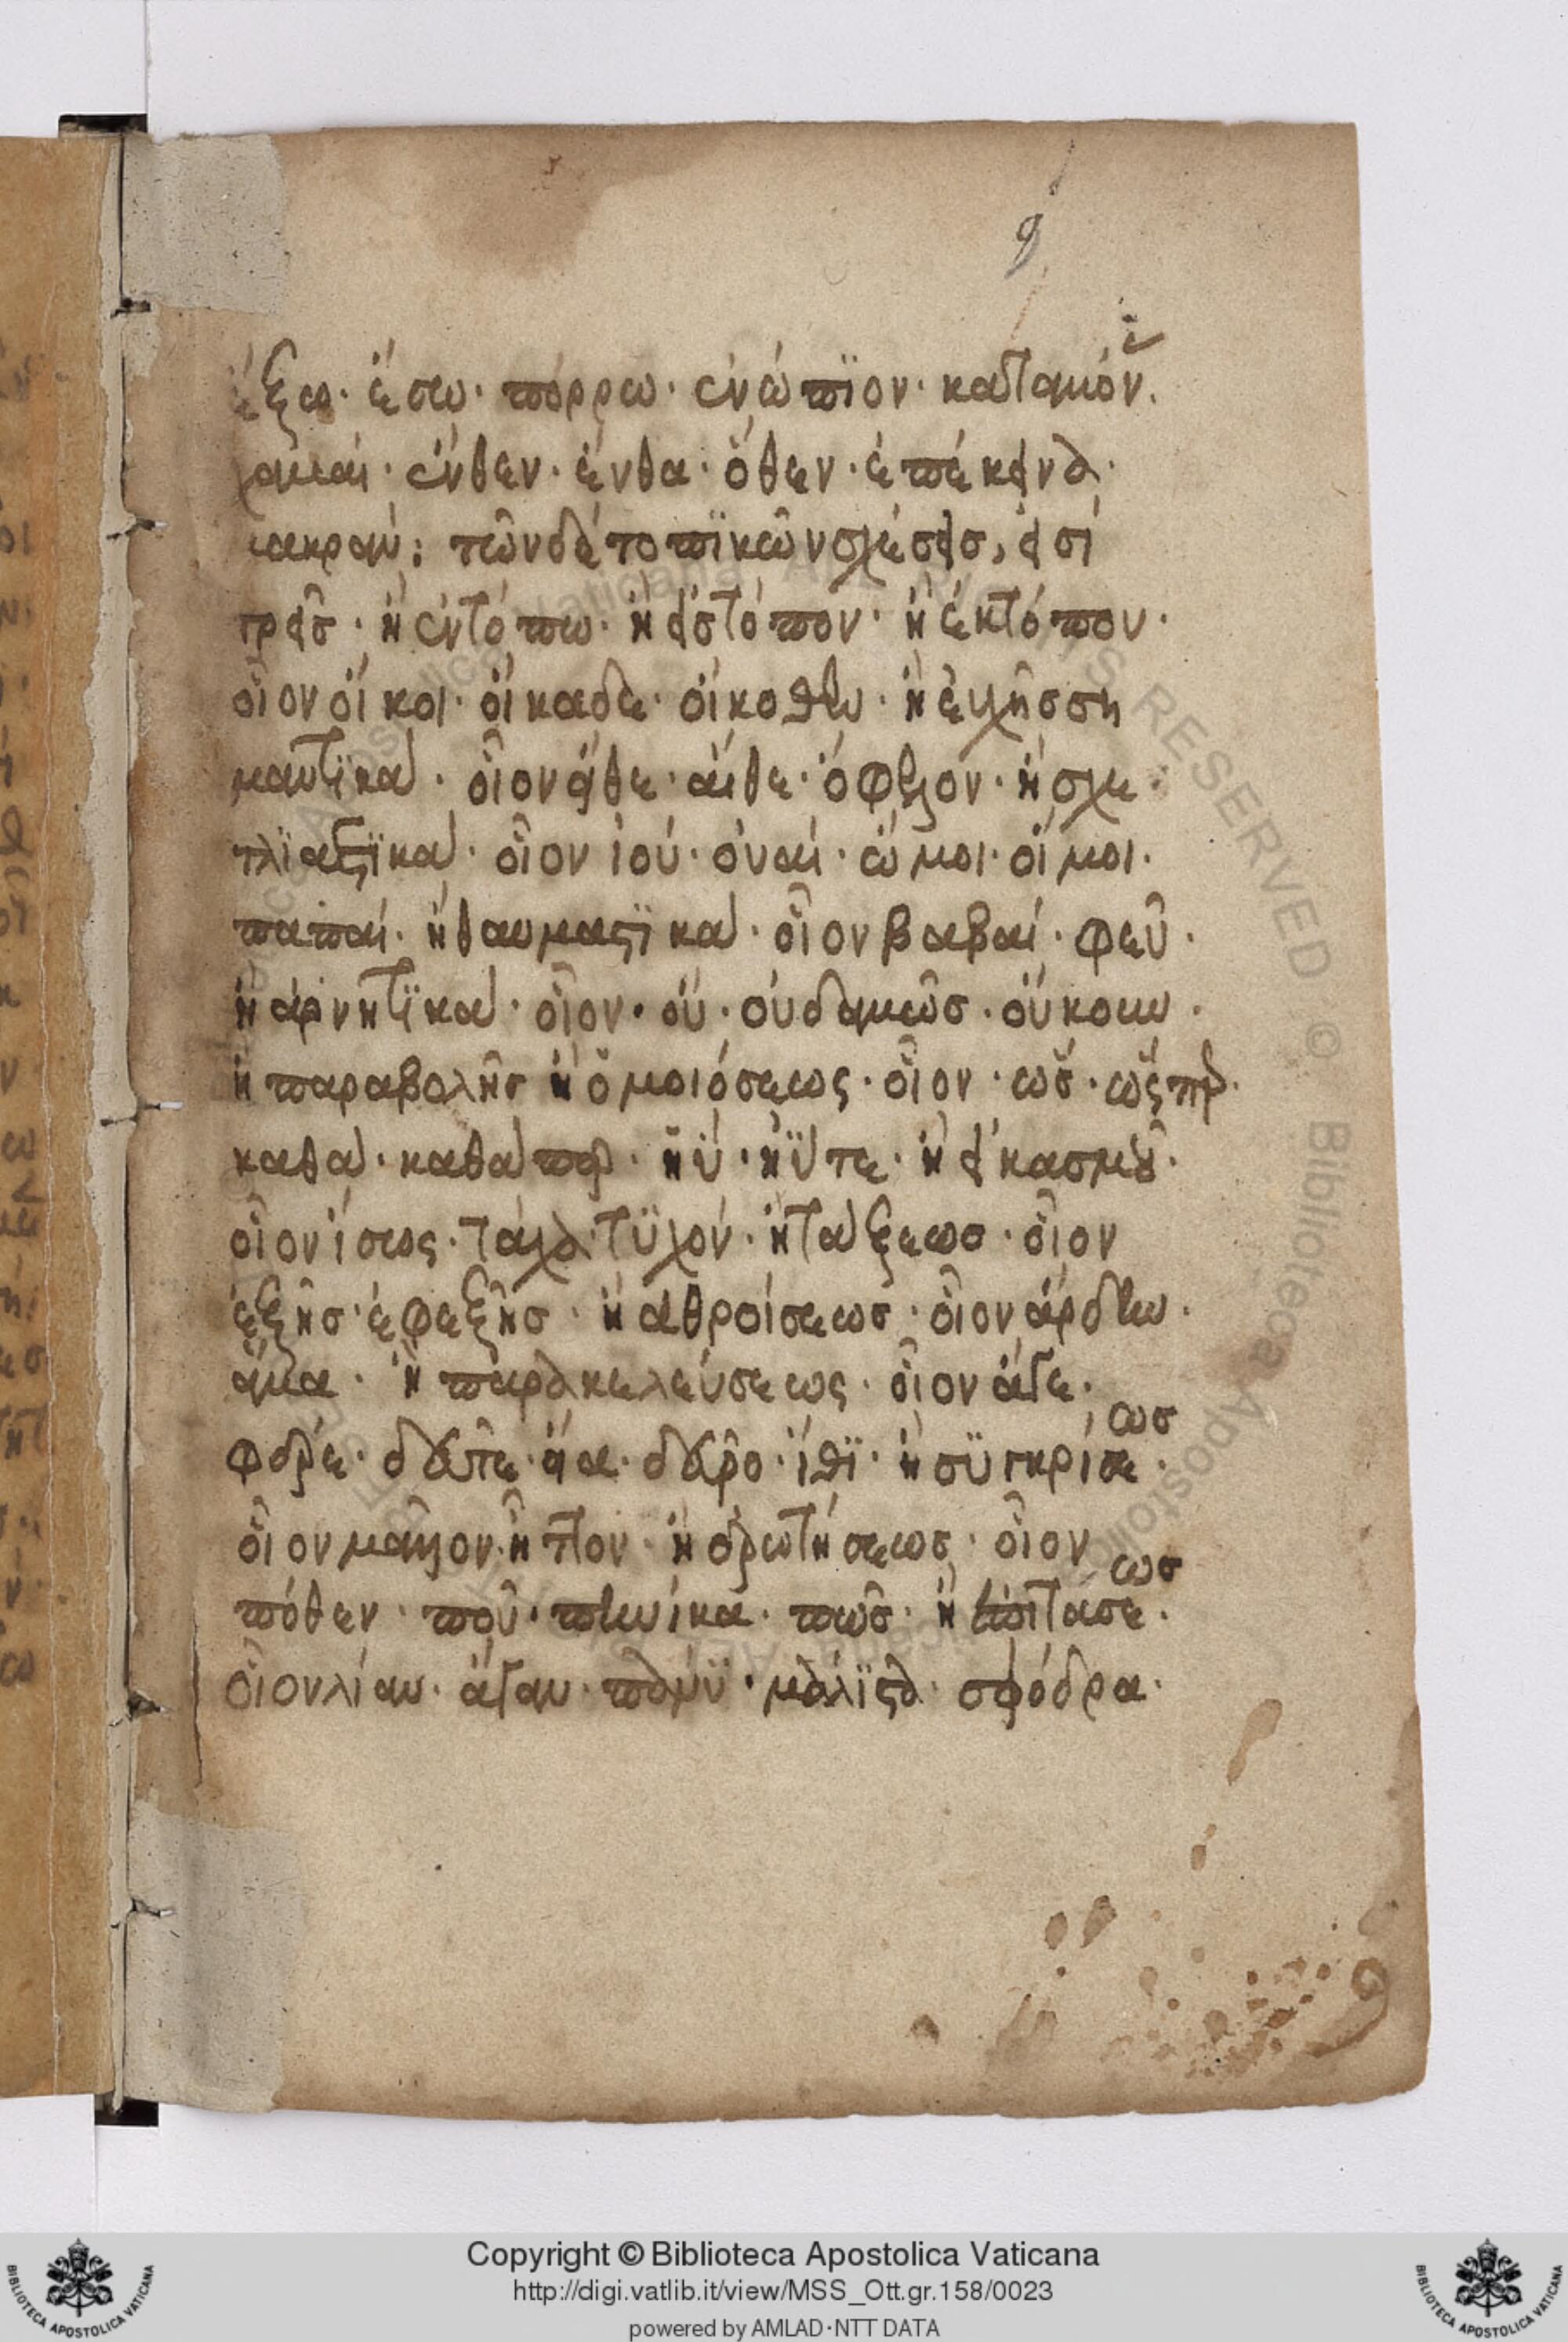 ἔξω· ἔσω· πόρρω· ἐνώπϊον· κατὰ μόν
χαμαί· ἔνθεν· ἔνθα· ὅθεν· ἐπέκεινα·
μακράν: τῶν δὲ τοπϊκῶν σχέσεισ, εἰσὶ
τρεῖσ· ἢ ἐν τόπω· ἢ εἰσ τόπον· ἢ ἐκ τόπου·
οἷον οἴκοι· οἴκαδε· οἴκοθεν· ἢ εὐχῆσ ση
μαντϊκά· οἷον εἴθε· αἴθε· ὄφελον· ἢ σχε
τλϊαστϊκά· οἷον ἰού· οὐαί· ὤμοι· οἴμοι·
παπαί· ἢ θαυμαστϊκά· οἷον βαβαί· φεῦ·
ἢ ἀρνητϊκά· οἷον· οὔ· οὐδαμῶσ· οὔκουν·
ἢ παραβολῆσ ἢ ὁμοιόσεως· οἷον· ὡσ· ὥσπερ·
καθά· καθάπερ· ἠΰ· ἠΰτε· ἢ εἰκασμοῦ·
οἷον ἴσως· τάχα· τϋχόν· ἢ τάξεωσ· οἷον
ἑξῆσ· ἐφεξῆσ· ἢ ἀθροίσεωσ· οἷον ἄρδην·
ἅμα· ἢ παρακελεύσεως· οἷον ἄγε·
φέρε· δεῦτε· εἶα· δεῦρο· ἴθϊ· ἢ σϋγκρίσεωσ·
οἷον μᾶλλον· ἧττον· ἢ ἐρωτήσεωσ· οἷον
πόθεν· ποῦ· πηνίκα· πῶσ· ἢ ἐπιτάσεωσ·
οἷον λίαν· ἄγαν· πάνϋ· μάλϊστα· σφόδρα·
Copyright © Biblioteca Apostolica Vaticana
http://digi.vatlib.it/view/MSS_Ott.gr.158/0023
powered by AMLAD·NTT DATA